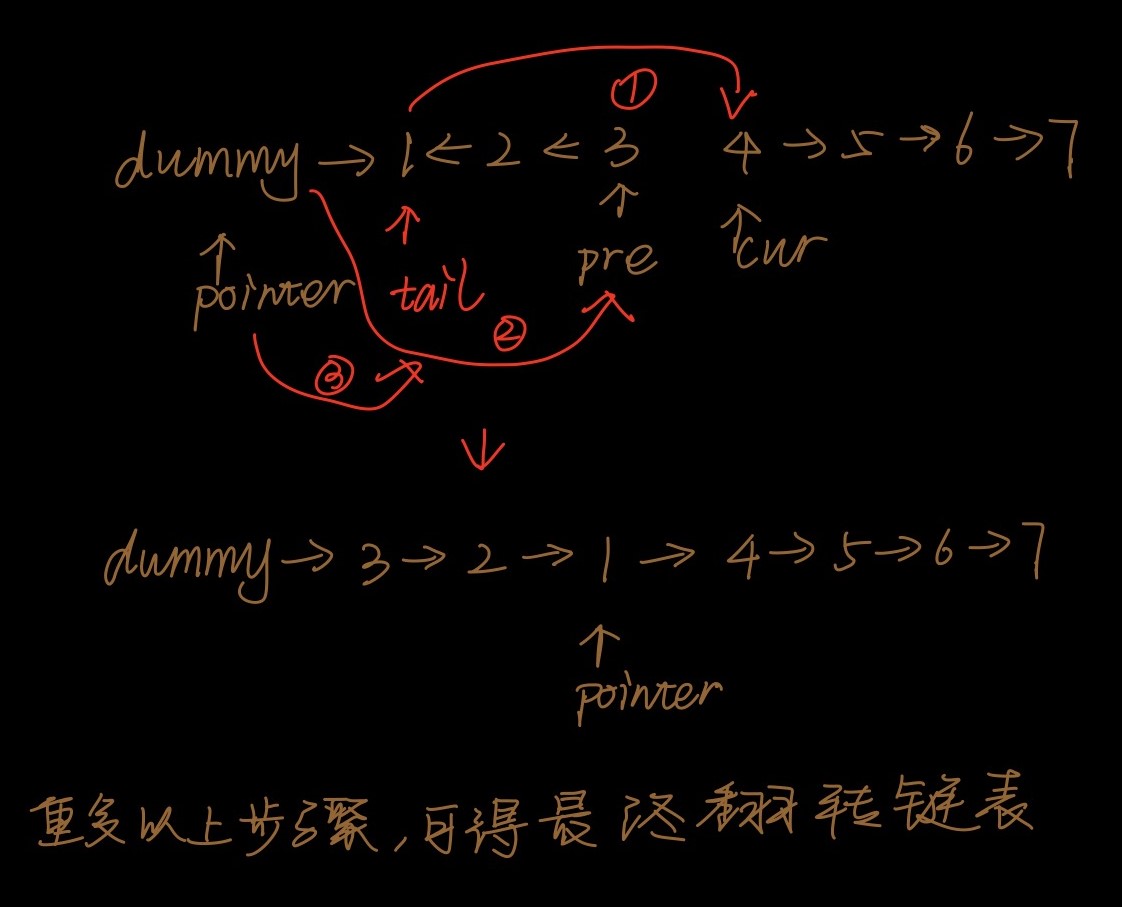 ①
dummy → 1 ← 2 ← 3 4 → 5 → 6 → 7
pre cur
pointer tail
②
③
dummy → 3 → 2 → 1 → 4 → 5 → 6 → 7
pointer
重多以上步骤,可得最终翻转链表